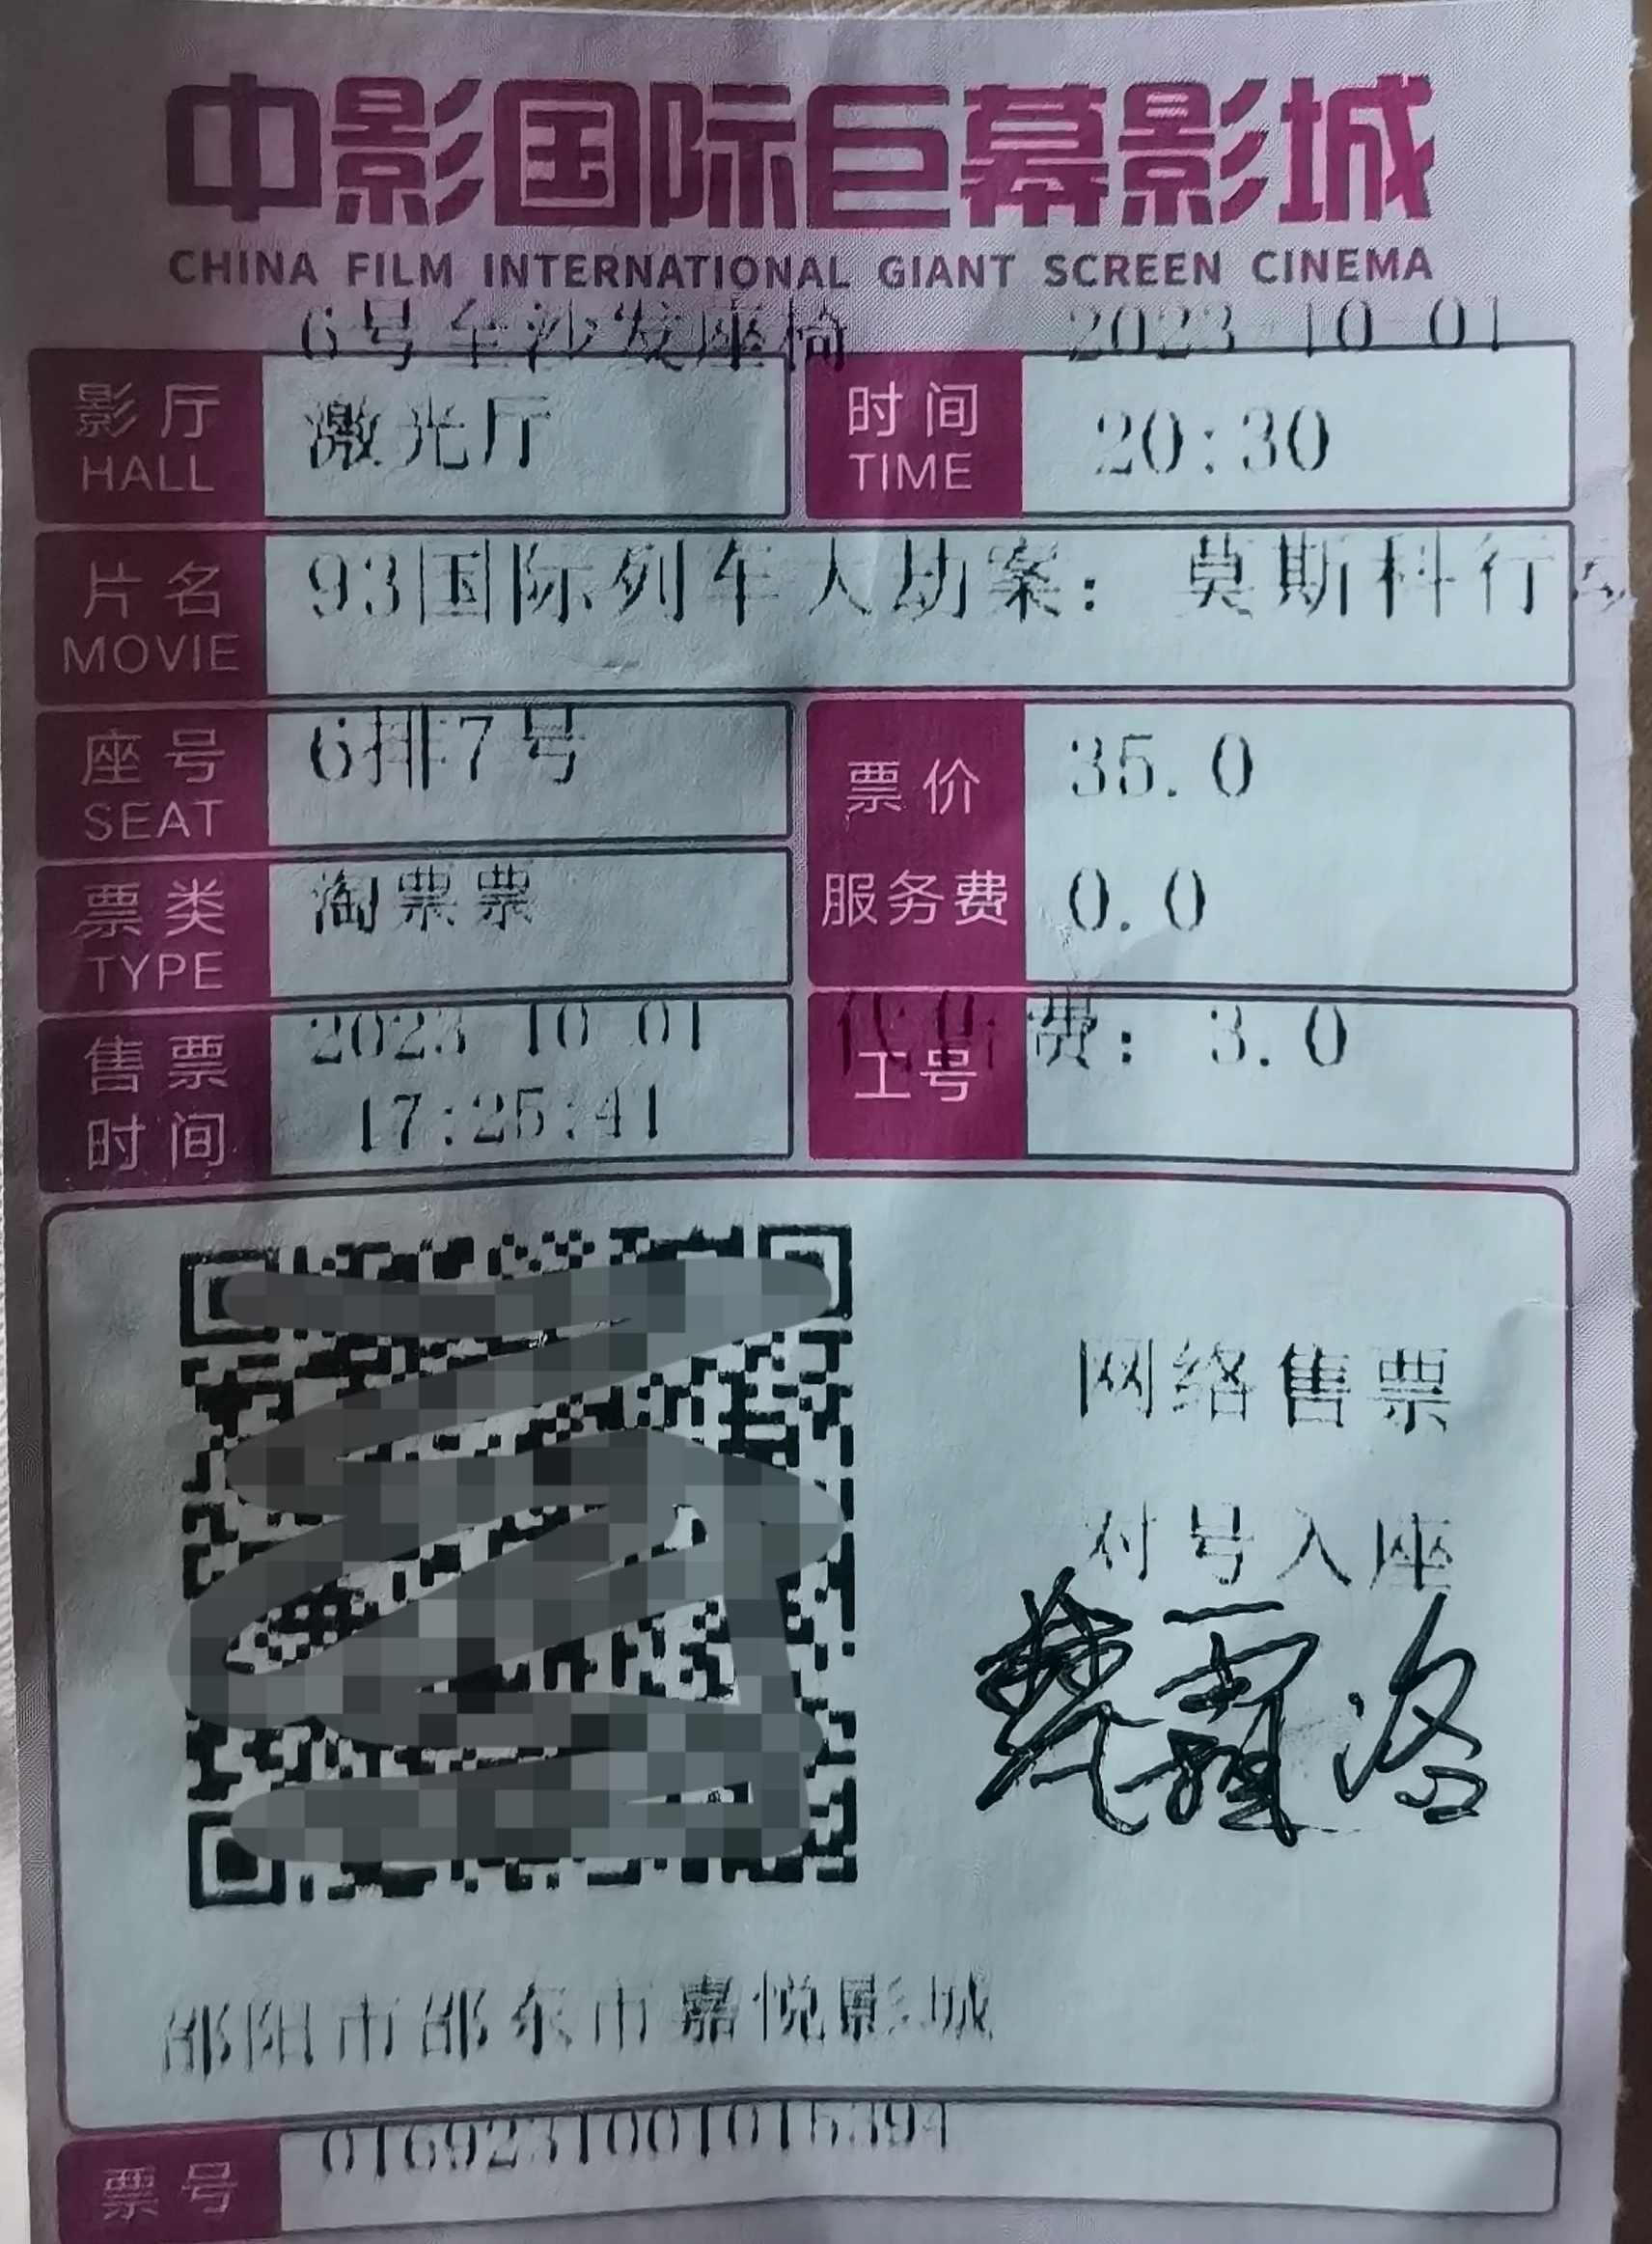 中影国际巨幕影城
CHINA FILM INTERNATIONAL GIANT SCREEN CINEMA
6号全沙发座椅 2023-10-01
影厅 HALL 激光厅 时间 TIME 20:30
片名 MOVIE 93国际列车大劫案：莫斯科行动
座号 SEAT 6排7号 票价 35.0
票类 TYPE 淘票票 服务费 0.0
售票时间 2023-10-01 工号 代售费：3.0
17:25:41
网络售票
对号入座
邵阳市邵东市嘉悦影城
票号 0169231001015394